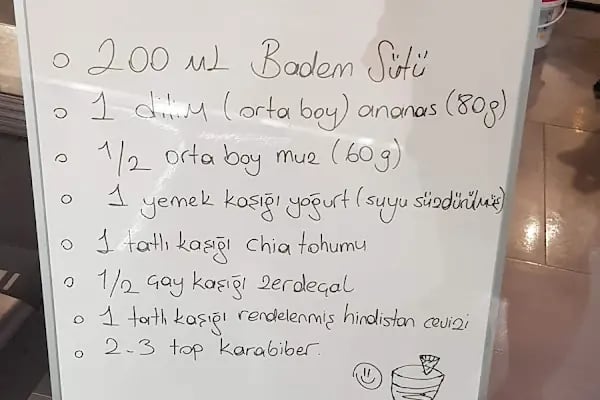 200 ML Badem Sütü
1 dilim (orta boy) ananas (80g)
1/2 orta boy muz (60g)
1 yemek kaşığı yoğurt (suyu süzdürülmüş)
1 tatlı kaşığı chia tohumu
1/2 çay kaşığı zerdeçal
1 tatlı kaşığı rendelenmiş hindistan cevizi
2-3 top karabiber.